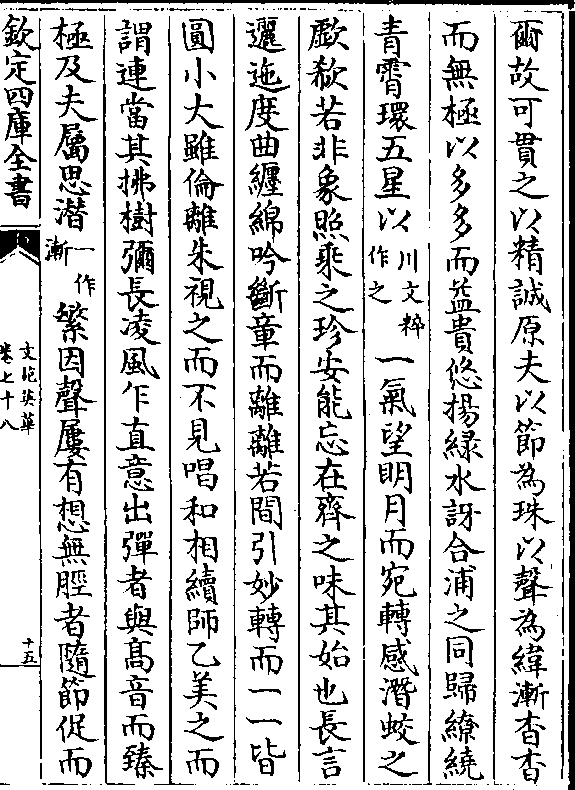 爾故可貫之以精誠原夫以節為珠以聲為緯漸杳杳
而無極以多多而益貴悠揚緑水訝合浦之同歸繚繞
青霄環五星以川文粹作之一氣望明月而宛轉感潛蛟之
歔欷若非象照乘之珍安能忘在齊之味其始也長言
邐迤度曲纒綿吟斷章而離離若間引妙轉而一一皆
圎小大雖倫離朱視之而不見唱和相續師乙美之而
謂連當其拂樹彌長凌風乍直意出彈者與髙音而臻
極及夫屬思潜一作漸繁因聲屢有想無脛者隨節促而
欽定四庫全書
文苑英華
卷七十八
十五